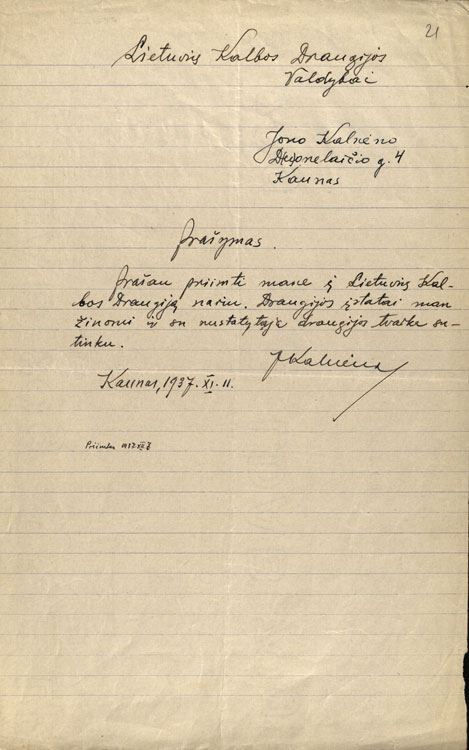 21
Lietuvių Kalbos Draugijos
Valdybai
Jono Kalnėno
Duonelaičio g. 4
Kaunas
Prašymas.
Prašau priimti mane į Lietuvių Kal-
bos Draugiją nariu. Draugijos įstatai man
žinomi ir su nustatytąja draugijos tvarka su-
tinku.
JKalnėnas
Kaunas, 1937.XI.11.
Priimtas 1937.XII.